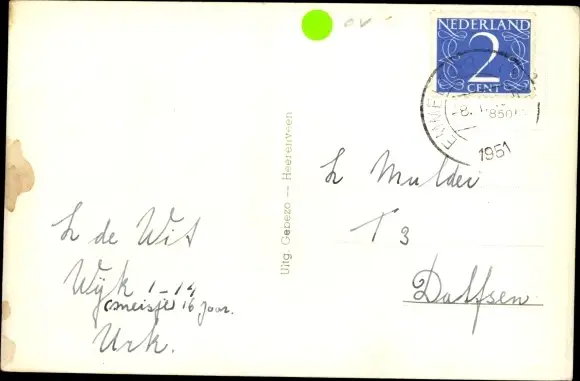 NEDERLAND
2
CENT
1951
Uitg. Gebezo — Heerenveen
h Mulder
T 3
Dalfsen
h de Wit
Wijk 1-14
(meisje 16 jaar.
Urk.